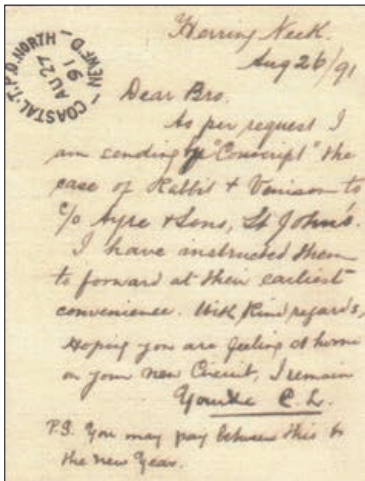 COASTAL·T.P.O. NORTH - NEWF'D -
AU 27
91
Herring Neck.
Aug 26/91
Dear Bro.
As per request I
am sending "Conscript" the
case of Rabbit + Venison to
c/o Ayre & Sons, St John's.
I have instructed them
to forward at their earliest
convenience. With Kind regards,
Hoping you are feeling at home
on your new Circuit, I remain
P.S. You may pay between this &
the new Year.